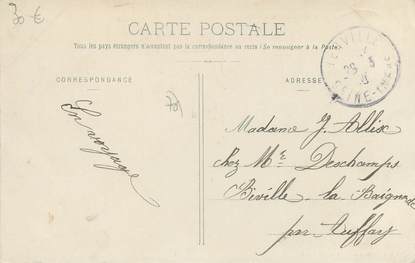 30 €
CARTE POSTALE
Tous les pays étrangers n'acceptent pas la correspondance au recto (Se renseigner à la Poste)
CORRESPONDANCE
ADRESSE
En voyage
Madame J. Allix
chez Mr Deschamps
Biville la Baignarde
par Tuffay